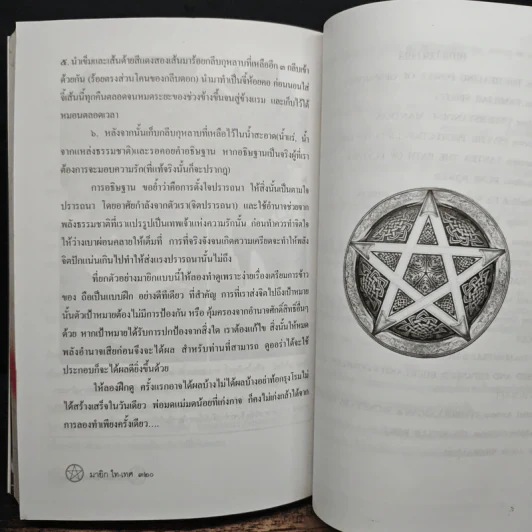 ๕. นำเข็มและเส้นด้ายสีแดงสองเส้นมาร้อยกลีบกุหลาบที่เหลืออีก ๓ กลีบเข้า
ด้วยกัน (ร้อยตรงส่วนโคนของกลีบดอก) นำมาทำเป็นจี้ห้อยคอ ก่อนนอนใส่
จี้เส้นนี้ทุกคืนตลอดจนหมดระยะของช่วงข้างขึ้นจนสู่ข้างแรม และเก็บไว้ใต้
หมอนตลอดเวลา
๖. หลังจากนั้นเก็บกลีบกุหลาบที่เหลือไว้ในน้ำสะอาด(น้ำแร่, น้ำ
จากแหล่งธรรมชาติ)และรอคอยคำอธิษฐาน หากอธิษฐานเป็นจริงผู้ที่เรา
ต้องการจะมอบความรัก(ที่แท้จริงนั้นก็จะปรากฏ)
การอธิษฐาน ขอย้ำว่าคือการตั้งใจปรารถนา ให้สิ่งนั้นเป็นตามใจ
ปรารถนา โดยอาศัยกำลังจากตัวเรา(จิตปรารถนา)และใช้อำนาจช่วยจาก
พลังธรรมชาติที่เราแปรรูปเป็นเทพเจ้าแห่งความรักนั้น ก่อนทำควรทำจิตใจ
ให้ว่างเบาผ่อนคลายให้เต็มที่ การที่จริงจังจนเกิดความเครียดจะทำให้พลัง
จิตปิดแน่นเกินไปทำให้ส่งแรงปรารถนานั้นไม่ถึง
ที่ยกตัวอย่างมายิกแบบนี้ให้ลองทำดูเพราะ ง่ายเรื่องเตรียมการข้าว
ของ ถือเป็นแบบฝึก อย่างดีทีเดียว ที่สำคัญ การที่เราส่งจิตไปถึงเป้าหมาย
นั้นตัวเป้าหมายต้องไม่มีการป้องกัน หรือ คุ้มครองจากอำนาจศักดิ์สิทธิ์อื่นๆ
ด้วย หากเป้าหมายได้รับการปกป้องจากสิ่งใด เราต้องแก้ไข สิ่งนั้นให้หมด
พลังอำนาจเสียก่อนจึงจะได้ผล สำหรับท่านที่สามารถ ดูออร่าได้จะใช้
ประกอบก็จะได้ผลดียิ่งขึ้นด้วย
ให้ลองฝึกดู ครั้งแรกอาจได้ผลบ้างไม่ได้ผลบ้างอย่าท้อกรุงโรมไม่
ได้สร้างเสร็จในวันเดียว พ่อมดแม่มดน้อยที่เก่งกาจ ก็คงไม่เก่งกล้าได้จาก
การลองทำเพียงครั้งเดียว....
มายิก ไท-เทศ ๓๒๐